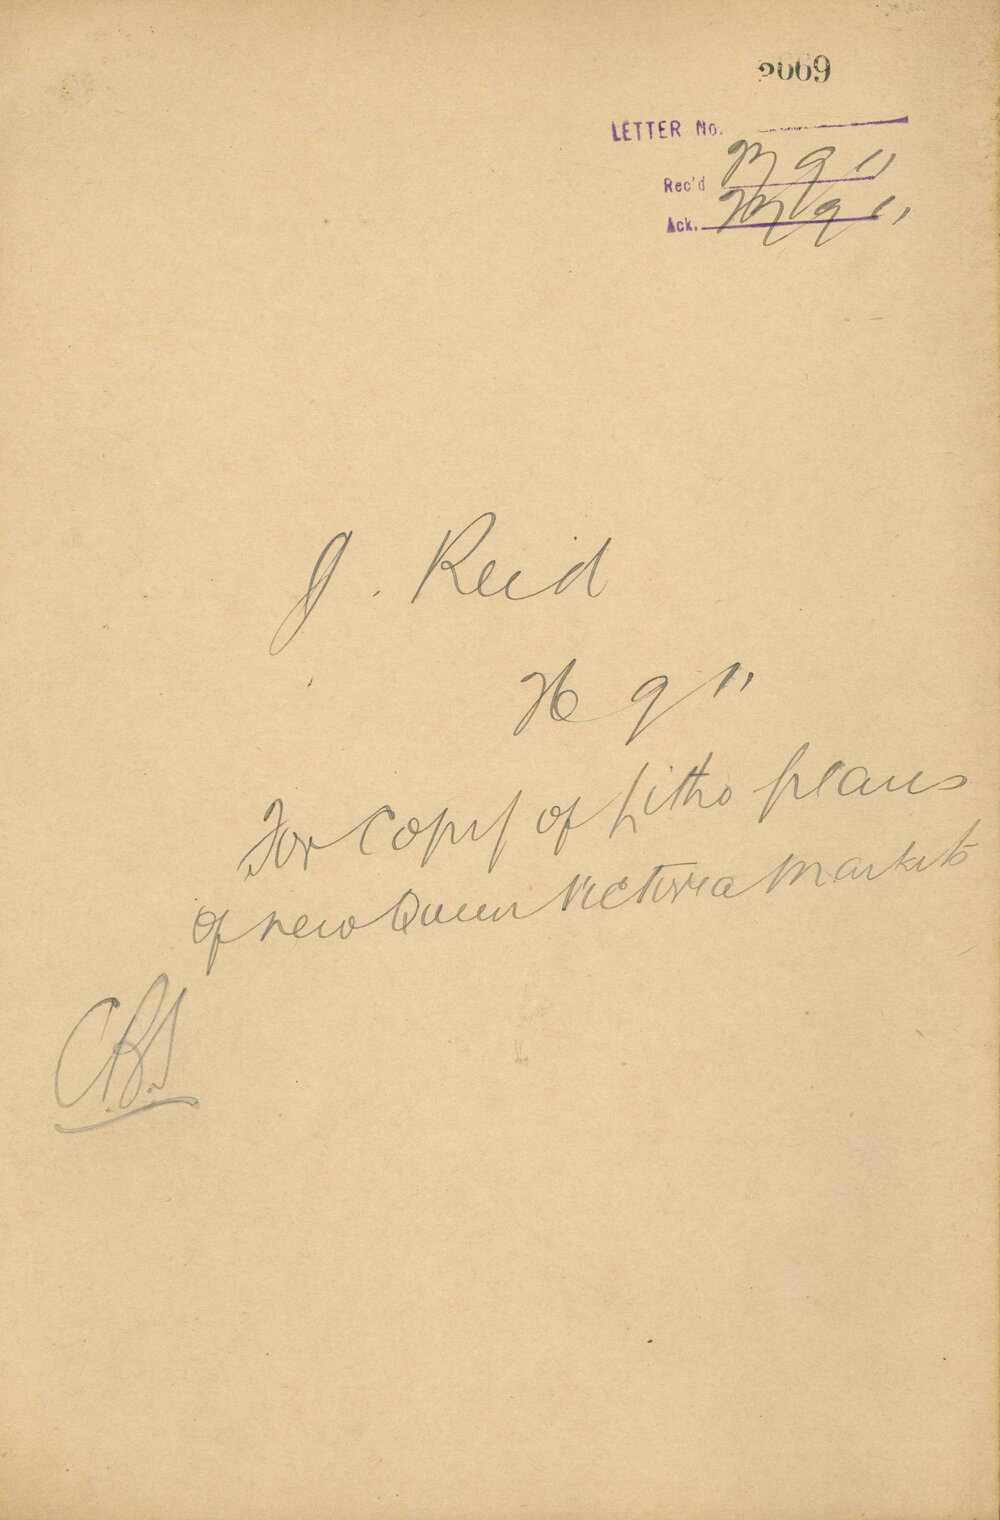 3669
LETTER No.
Rec'd 9 11
Ack. 9 11
J. Reid
26 9 11
For Copy of Litho plans
of new Queen Victoria Markets
C.B.